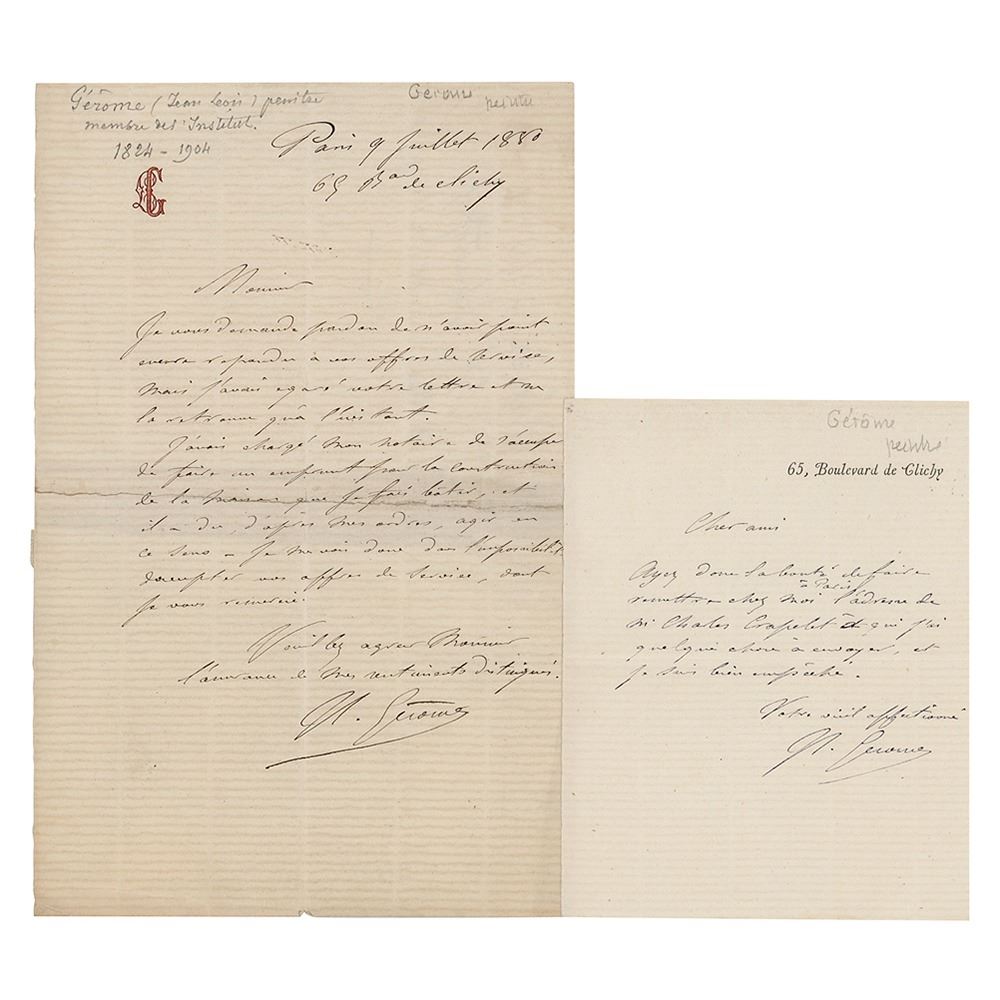 Gérôme (Jean Leon) peintre
membre de l'Institut.
1824 - 1904
Gérome
peintre
Paris 9 Juillet 1880
65 Bard de Clichy
Monsieur
Je vous demande pardon de n'avoir point
encore repondu à vos offres de service,
mais j'avais egaré votre lettre et ne
la retrouve qu'à l'instant.
J'avais chargé mon notaire de s'occuper
de faire un emprunt pour la construction
de la maison que je fais bâtir, et
il a du, d'après mes ordres, agir en
ce sens - Je me vois donc dans l'impossibilité
d'accepter vos offres de service, dont
je vous remercie.
Veuillez agreer Monsieur
l'assurance de mes sentiments distingués.
JL. Gérome
Gérôme
peintre
65, Boulevard de Clichy
Cher ami
Ayez donc la bonté de faire
remettre chez moi à Paris l'adresse de
Mr Charles Crapelet à qui j'ai
quelque chose à envoyer, et
je suis bien empêché.
Votre vieil affectionné
JL. Gerome